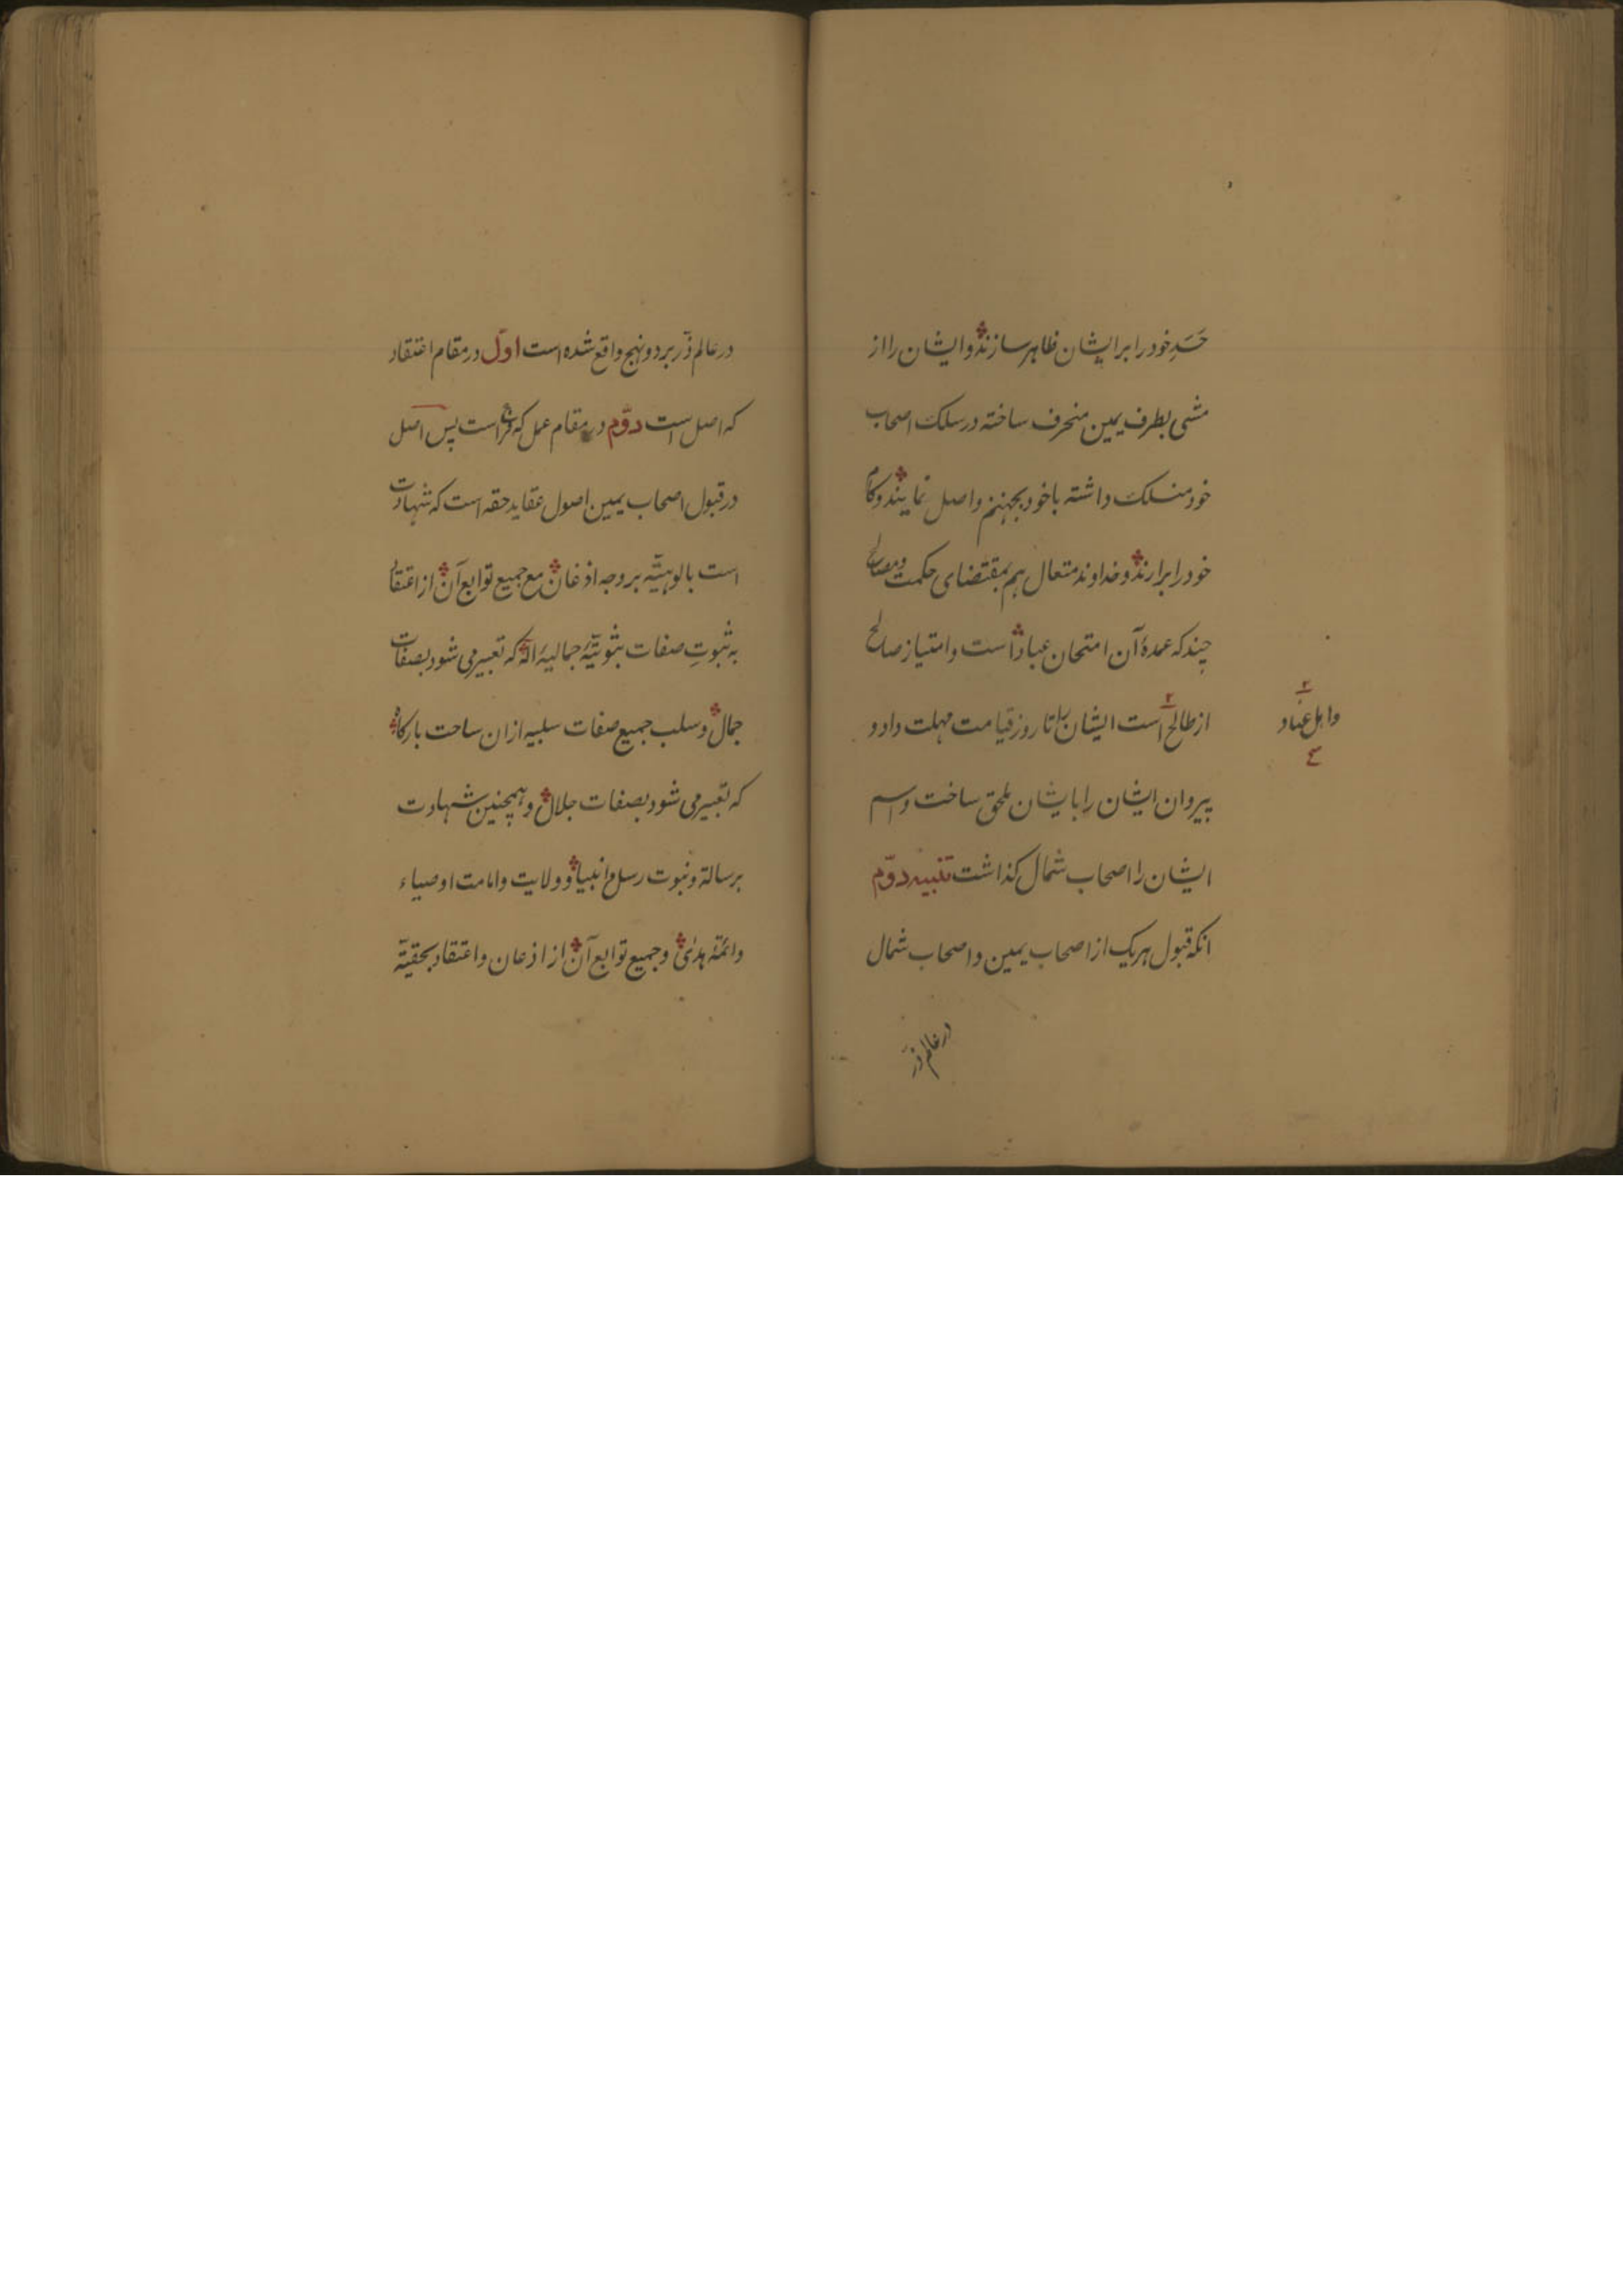 حَسَدِ خود را بر ایشان ظاهر سازند و ایشان را از
مشی بطرف یمین منحرف ساخته در سلک اصحاب
خود منسلک داشته با خود بجهنم واصل نمایند و کام
خود را برارند و خداوند متعال هم بمقتضای حکمت و مصالح
چند که عمدهٔ آن امتحان عباد است و امتیاز صالح
از طالح است ایشان را تا روز قیامت مهلت داد و
واهل عناد
پیروان ایشان را بایشان ملحق ساخت و اسم
ایشان را اصحاب شمال گذاشت تنبیه دوّم
انکه قبول هریک از اصحاب یمین و اصحاب شمال
در عالم ذر
در عالم ذر بر دو نهج واقع شده است اوّل در مقام اعتقاد
که اصل است دوّم در مقام عمل که فرع است پس اصل
در قبول اصحاب یمین اصول عقاید حقه است که شهادت
است بالوهیّة بر وجه اذعان مع جمیع توابع آن از اعتقاد
به ثبوتِ صفات ثبوتیّهٔ جمالیهٔ اله که تعبیر می شود بصفات
جمال و سلب جمیع صفات سلبیه ازان ساحت بارگاه
که تعبیر می شود بصفات جلال و همچنین شهادت
برسالة و نبوت رسل و انبیا و ولایت و امامت اوصیاء
وائمّهٔ هدیٰ و جمیع توابع آن از اذعان و اعتقاد بحقیّة